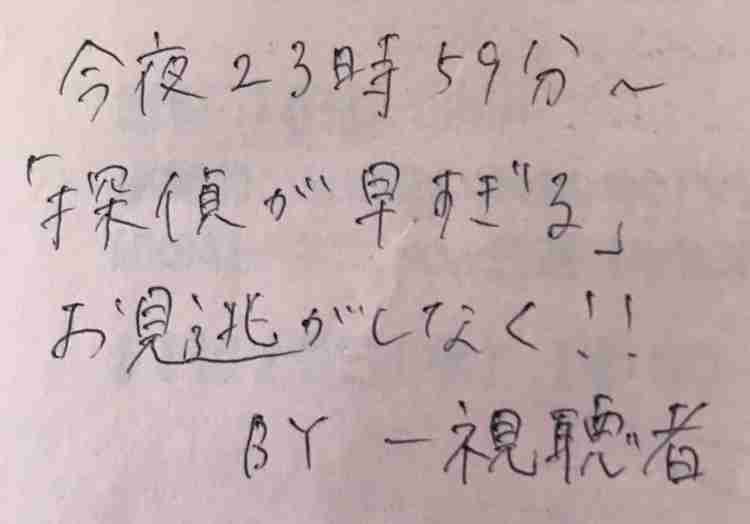 今夜23時59分~
「探偵が早すぎる」
お見逃がしなく!!
BY 一視聴者